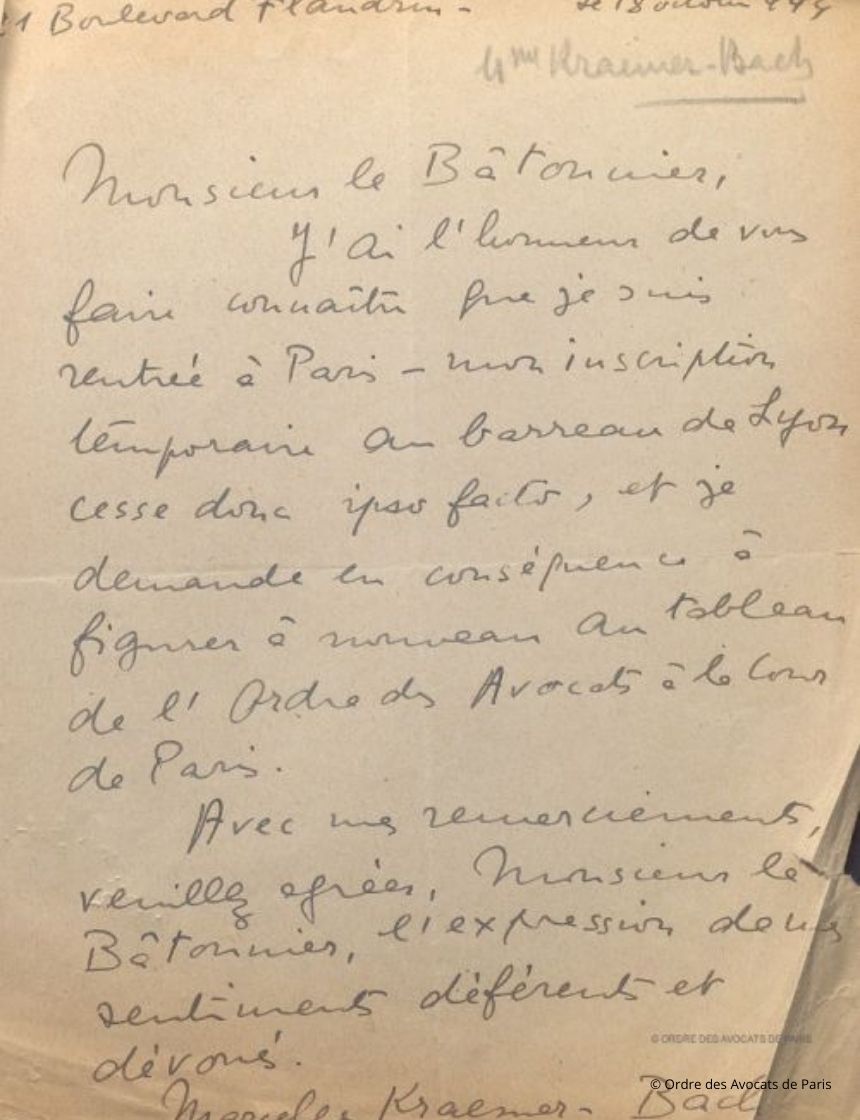 21 Boulevard Flandrin -
le 18 octobre 1944
Mme Kraemer-Bach
Monsieur le Bâtonnier,
J'ai l'honneur de vous
faire connaître que je suis
rentrée à Paris - mon inscription
temporaire au barreau de Lyon
cesse donc ipso facto, et je
demande en conséquence à
figurer à nouveau au tableau
de l'Ordre des Avocats à la Cour
de Paris.
Avec mes remerciements,
veuillez agréer, Monsieur le
Bâtonnier, l'expression de mes
sentiments déférents et
dévoués.
Marcelle Kraemer-Bach
© ORDRE DES AVOCATS DE PARIS
© Ordre des Avocats de Paris